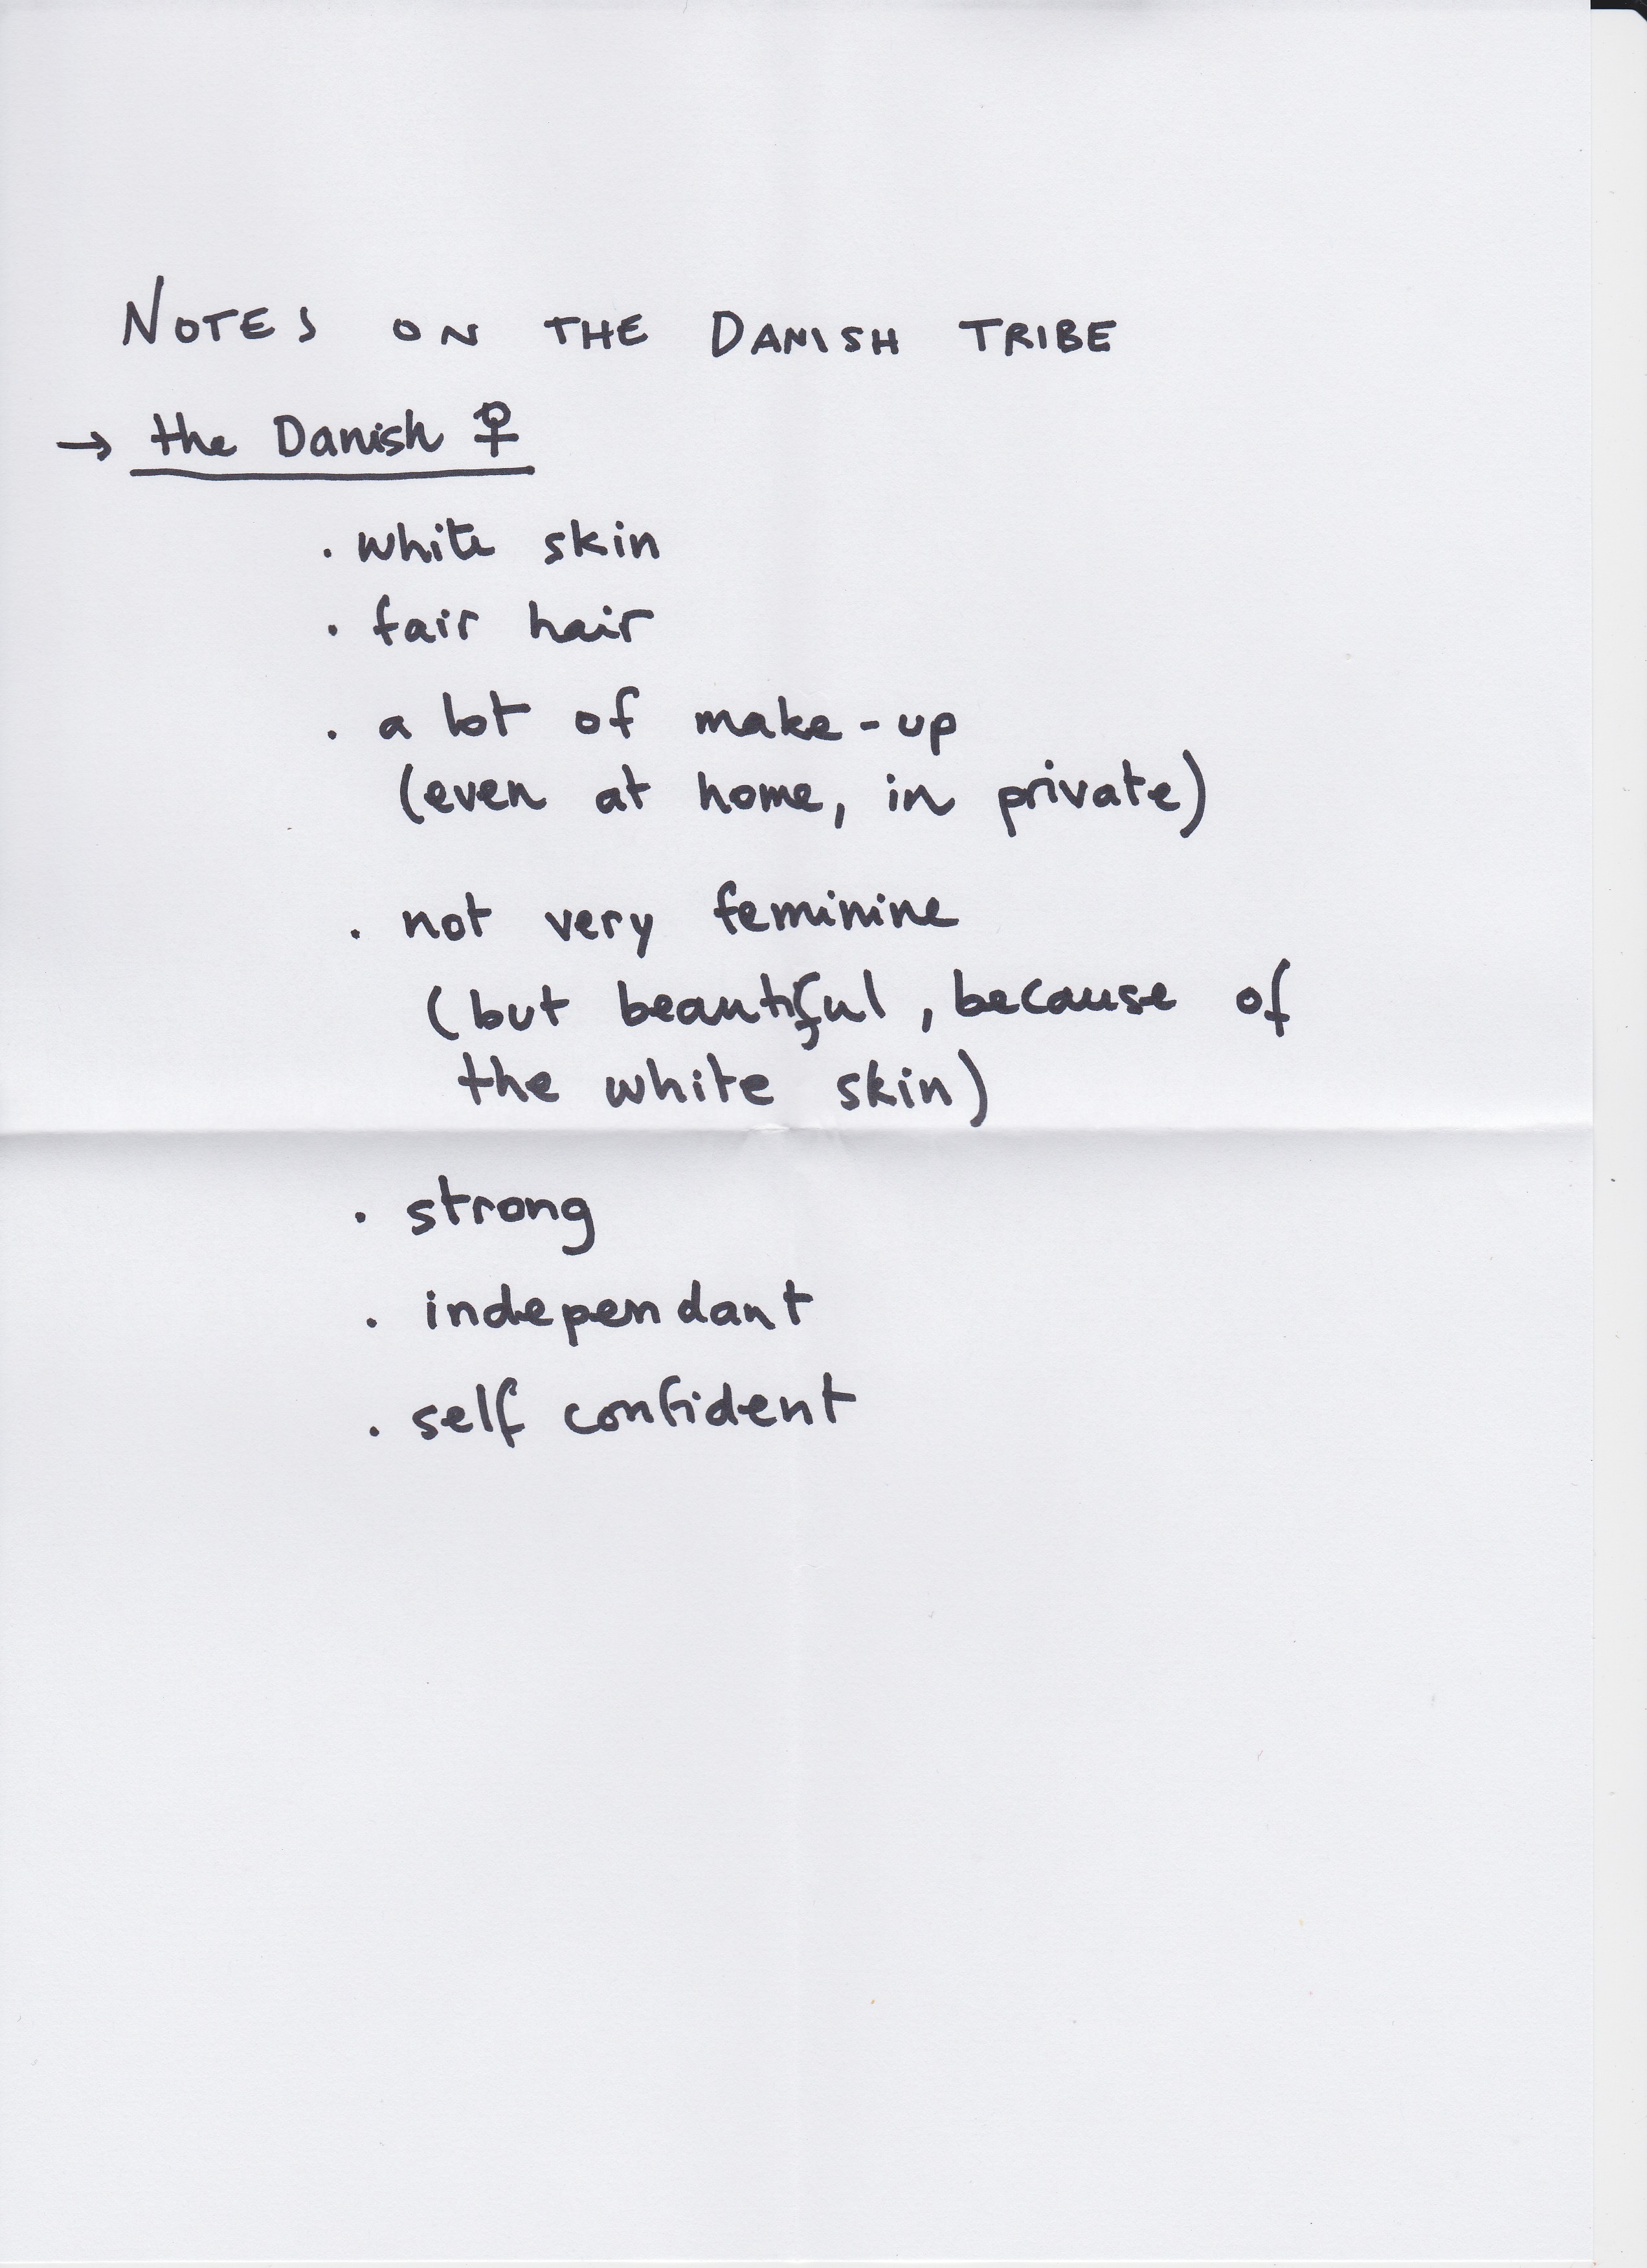 NOTES ON THE DANISH TRIBE
→ the Danish ♀
. white skin
. fair hair
. a lot of make-up
(even at home, in private)
. not very feminine
(but beautiful, because of
the white skin)
. strong
. independant
. self confident